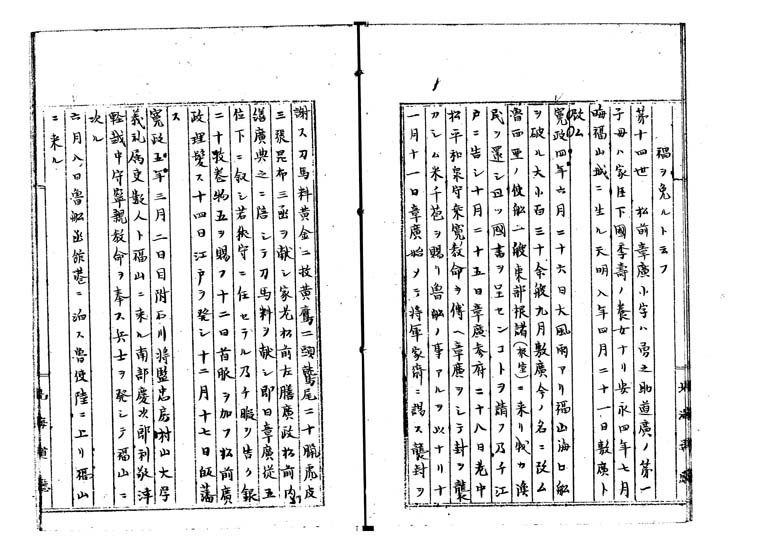 禍ヲ免ルト云フ
第十四世 松前章廣小字ハ勇之助道廣ノ第一
子母ハ家臣下國季壽ノ養女ナリ安永四年七月
晦福山城ニ生ル天明八年四月二十一日敷廣ト
改ム
寛政四年六月二十六日大風雨アリ福山海口船
ヲ破ル大小百三十余艘九月敷廣今ノ名ニ改ム
魯西亜ノ使船一艘東部根諸(根室)ニ来リ我カ漂
民ヲ還シ且ツ國書ヲ呈センコトヲ請フ乃チ江
戸ニ告シ十月二十五日章廣参府二十八日老中
松平和泉守乗寛教命ヲ傳ヘ章廣ヲシテ封ヲ襲
カシム米千苞ヲ賜リ魯船ノ事アルヲ以ナリ十
一月十一日章廣始メテ将軍家齊ニ謁ス襲封ヲ
謝ス刀馬料黄金二枚黄鷹二頭鷲尾二十臘虎皮
三張昆布三函ヲ献シ家老松前左膳廣政松前内
譜廣典之ニ陪シテ刀馬料ヲ献シ即日章廣従五
位下ニ叙シ若狭守ニ任セラル乃チ暇ヲ告ク銀
二十枚巻物五ヲ賜フ十二日首服ヲ加フ松前廣
政理髪ス十四日江戸ヲ発シ十二月十七日皈藩
ス
寛政五年三月二日目附石川将監忠房村山大学
義礼属吏数人ト福山ニ来ル南部慶次郎利敬津
軽越中守寧親教命ヲ奉ス兵士ヲ発シテ福山ニ
次ル
六月八日魯船函館港ニ泊ス魯使陸ニ上リ福山
ニ来ル
北海道誌